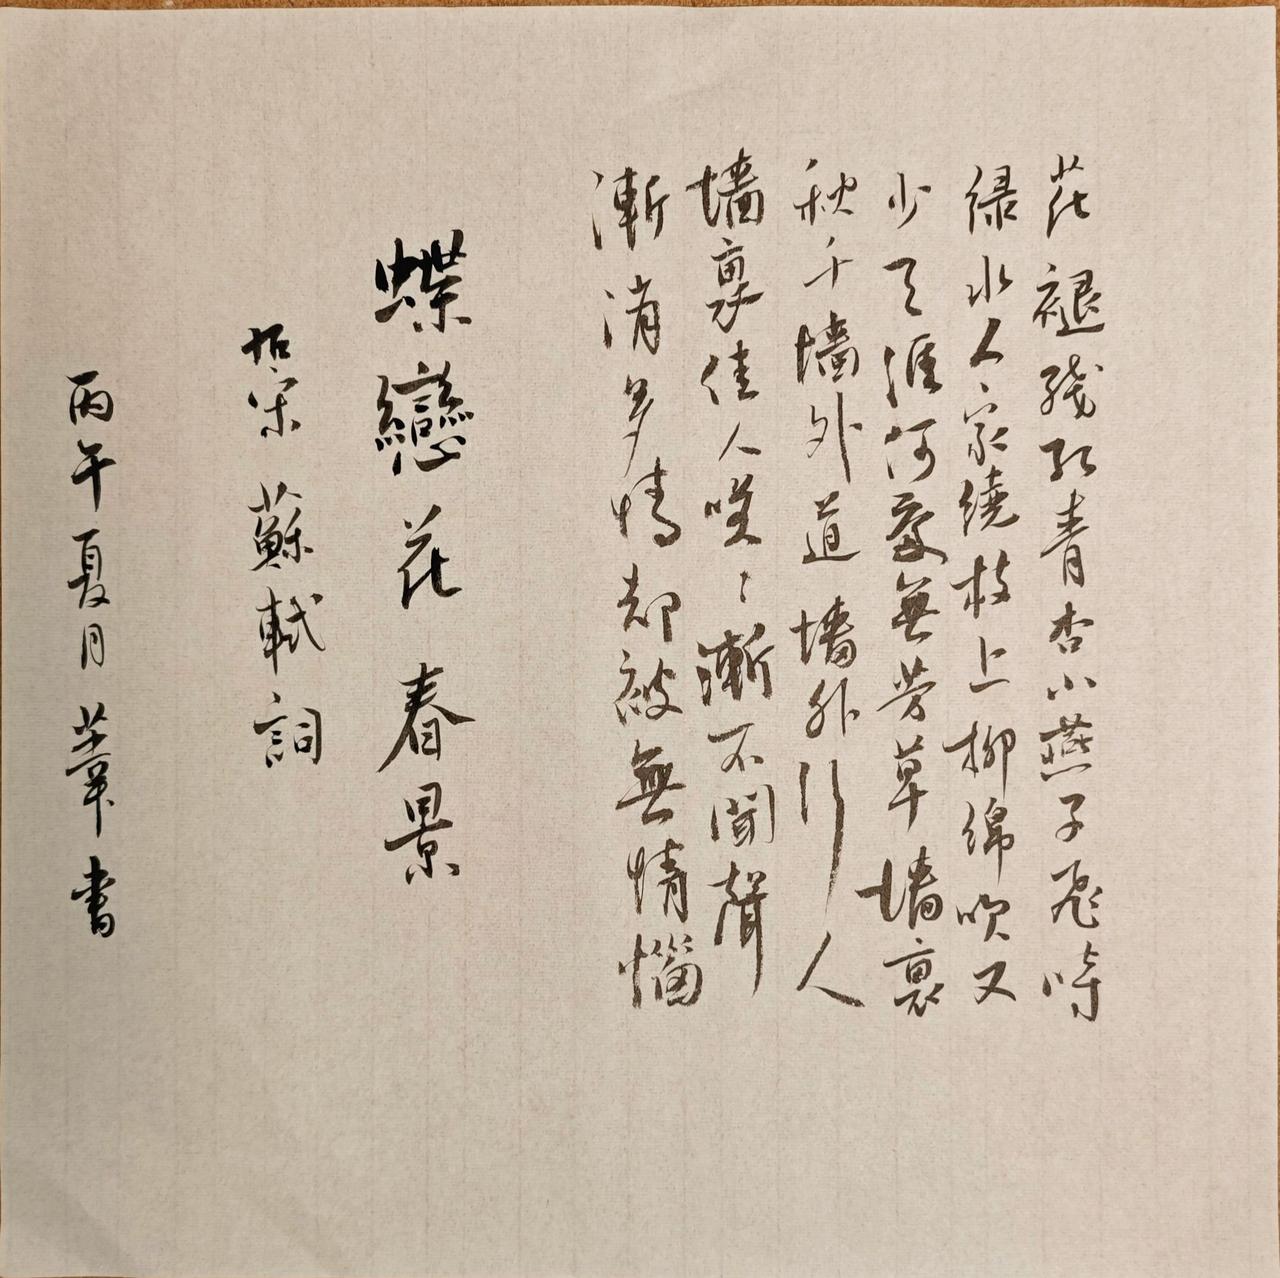 花褪殘紅青杏小燕子飛時
緑水人家繞枝上柳綿吹又
少天涯何處無芳草墙裏
秋千墙外道墙外行人
墙裏佳人咲〻漸不聞聲
漸消多情却被無情惱
蝶戀花春景
宋蘇軾詞
丙午夏月葦書